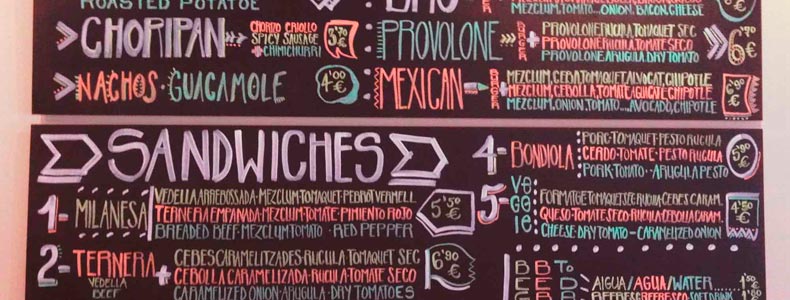 ROASTED POTATOE
CHORIPAN
CHORIZO CRIOLLO
SPICY SAUSAGE
+CHIMICHURRI
3'70 €
NACHOS · GUACAMOLE
4'00 €
MEZCLUM, TOMATO... ONION, BACON, CHEESE
PROVOLONE
BURGER
+
PROVOLONE, RUCULA, TOMAQUET SEC
PROVOLONE, RUCULA, TOMATE SECO
PROVOLONE, ARUGULA, DRY TOMATO
MEXICAN
+
MEZCLUM, CEBA, TOMAQUET, ALVOCAT, CHIPOTLE
MEZCLUM, CEBOLLA, TOMATE, AGUACATE, CHIPOTLE
MEZCLUM, ONION, TOMATO.... AVOCADO, CHIPOTLE
6'90 €
SANDWICHES
1- MILANESA
VEDELLA ARREBOSSADA·MEZCLUM·TOMAQUET·PEBROT VERMELL
TERNERA EMPANADA·MEZCLUM·TOMATE·PIMIENTO ROJO
BREADED BEEF·MEZCLUM·TOMATO·RED PEPPER
5'50 €
2- TERNERA
VEDELLA
BEEF
+
CEBES CARAMELITZADES·RUCULA·TOMAQUET SEC
CEBOLLA CARAMELIZADA·RUCULA·TOMATE SECO
CARAMELIZED ONION·ARUGULA·DRY TOMATOES
6'90 €
4- BONDIOLA
PORC·TOMAQUET·PESTO RUCULA
CERDO·TOMATE·PESTO RUCULA
PORK·TOMATO·ARUGULA PESTO
5'90 €
5- VEGGIE:
FORMATGE·TOMAQUET SEC·RUCULA·CEBES CARAM.
QUESO·TOMATE SECO·RUCULA·CEBOLLA CARAM.
CHEESE·DRY TOMATO-CARAMELIZED ONION
4'50 €
AIGUA/AGUA/WATER
1'50
REFRESC/REFRESCO/SOFT DRINK